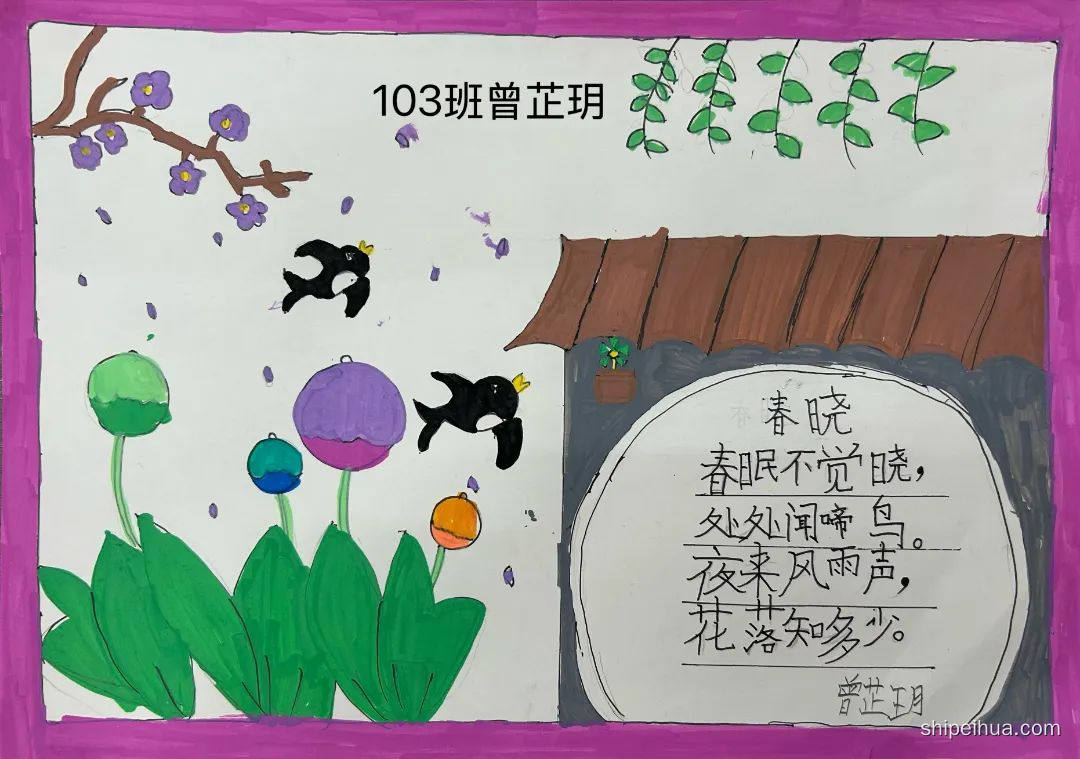 103班曾芷玥
春晓
春眠不觉晓，
处处闻啼鸟。
夜来风雨声，
花落知多少。
曾芷玥
shipeihua.com